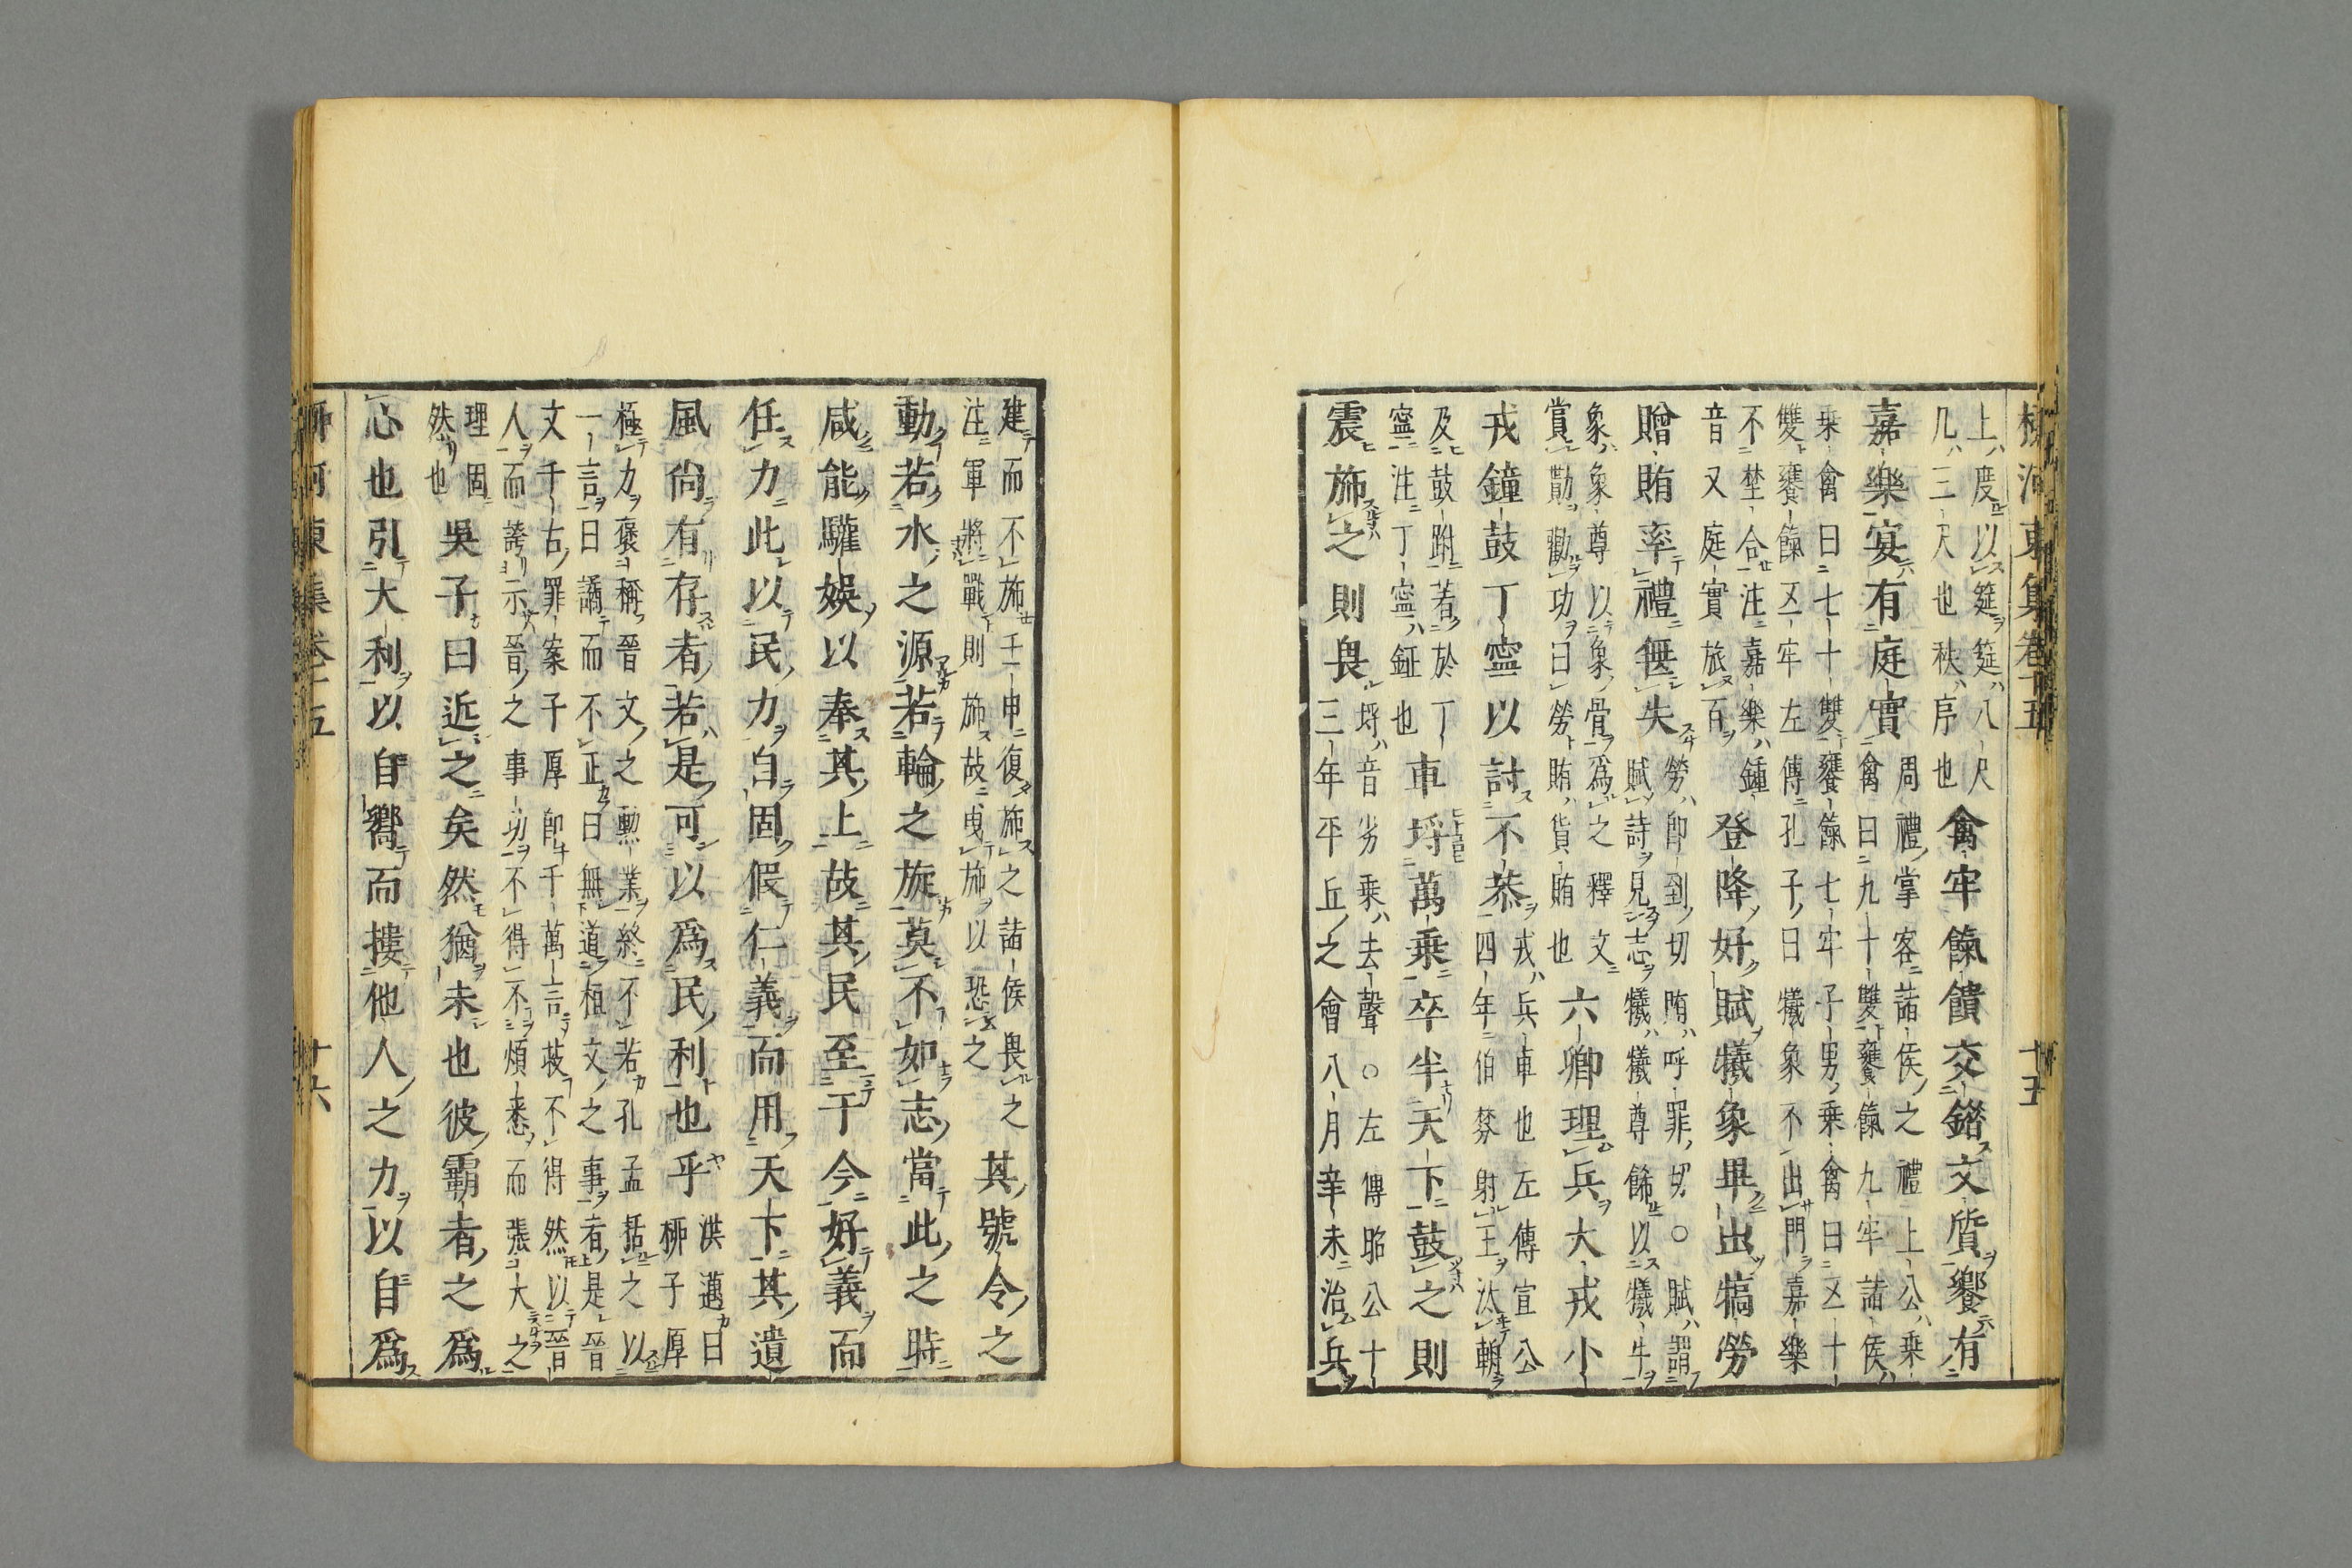 柳河東集卷十五　十五
上度以筵筵八尺
几三尺也秩序也禽牢餼饋交錯文質饗有
嘉樂宴有庭實周禮掌客諸侯之禮上公乗
禽日九十雙饔餼九牢諸侯
乗禽日七十雙饔餼七牢子男乗禽日五十
雙饔餼五牢左傳孔子曰犧象不出門嘉樂
不埜合注嘉樂鍾
音又庭實旅百登降好賦犧象畢出犒勞
贈賄率禮無失勞郎到切賄呼罪切○賦謂
賦詩見志犧犧尊餙以犧牛
象象尊以象骨爲之釋文
賞勛勸功曰勞賄貨賄也六卿理兵大戎小
戎鐘鼓丁寧以討不恭戎兵車也左傳宣公
四年伯棼射王汰輈
及鼓跗著於丁
寧注丁寧鉦也車埒萬乗卒半天下鼓之則
震旆之則畏埒音劣乗去聲○左傳昭公十
三年平丘之會八月辛未治兵
建而不旆壬申復旆之諸侯畏之
注軍將戰則旆故曳旆以恐之其號令之
動若水之源若輪之旋莫不如志當此之時
咸能驩娛以奉其上故其民至于今好義而
任力此以民力自固假仁義而用天下其遺
風尚有存者若是可以爲民利也乎洪邁曰
柳子厚
極力褒稱晉文之勲業終不若孔孟括之以
一言曰譎而不正曰無道桓文之事者是晉
文千古罪案子厚郎千萬言萟不得然以晉
人而誇示晉之事功不得不煩悉而張大之
理固
然也吳子曰近之矣然猶未也彼霸者之爲
心也引大利以自嚮而摟他人之力以自爲
柳河東集卷十五　十六